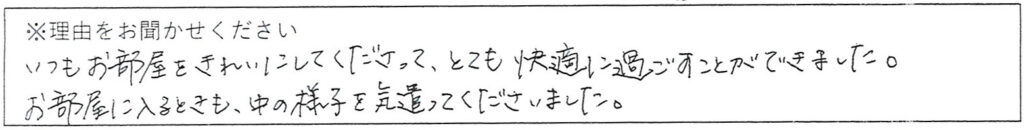 ※理由をお聞かせください
いつもお部屋をきれいにしてくださって、とても快適に過ごすことができました。
お部屋に入るときも、中の様子を気遣ってくださいました。